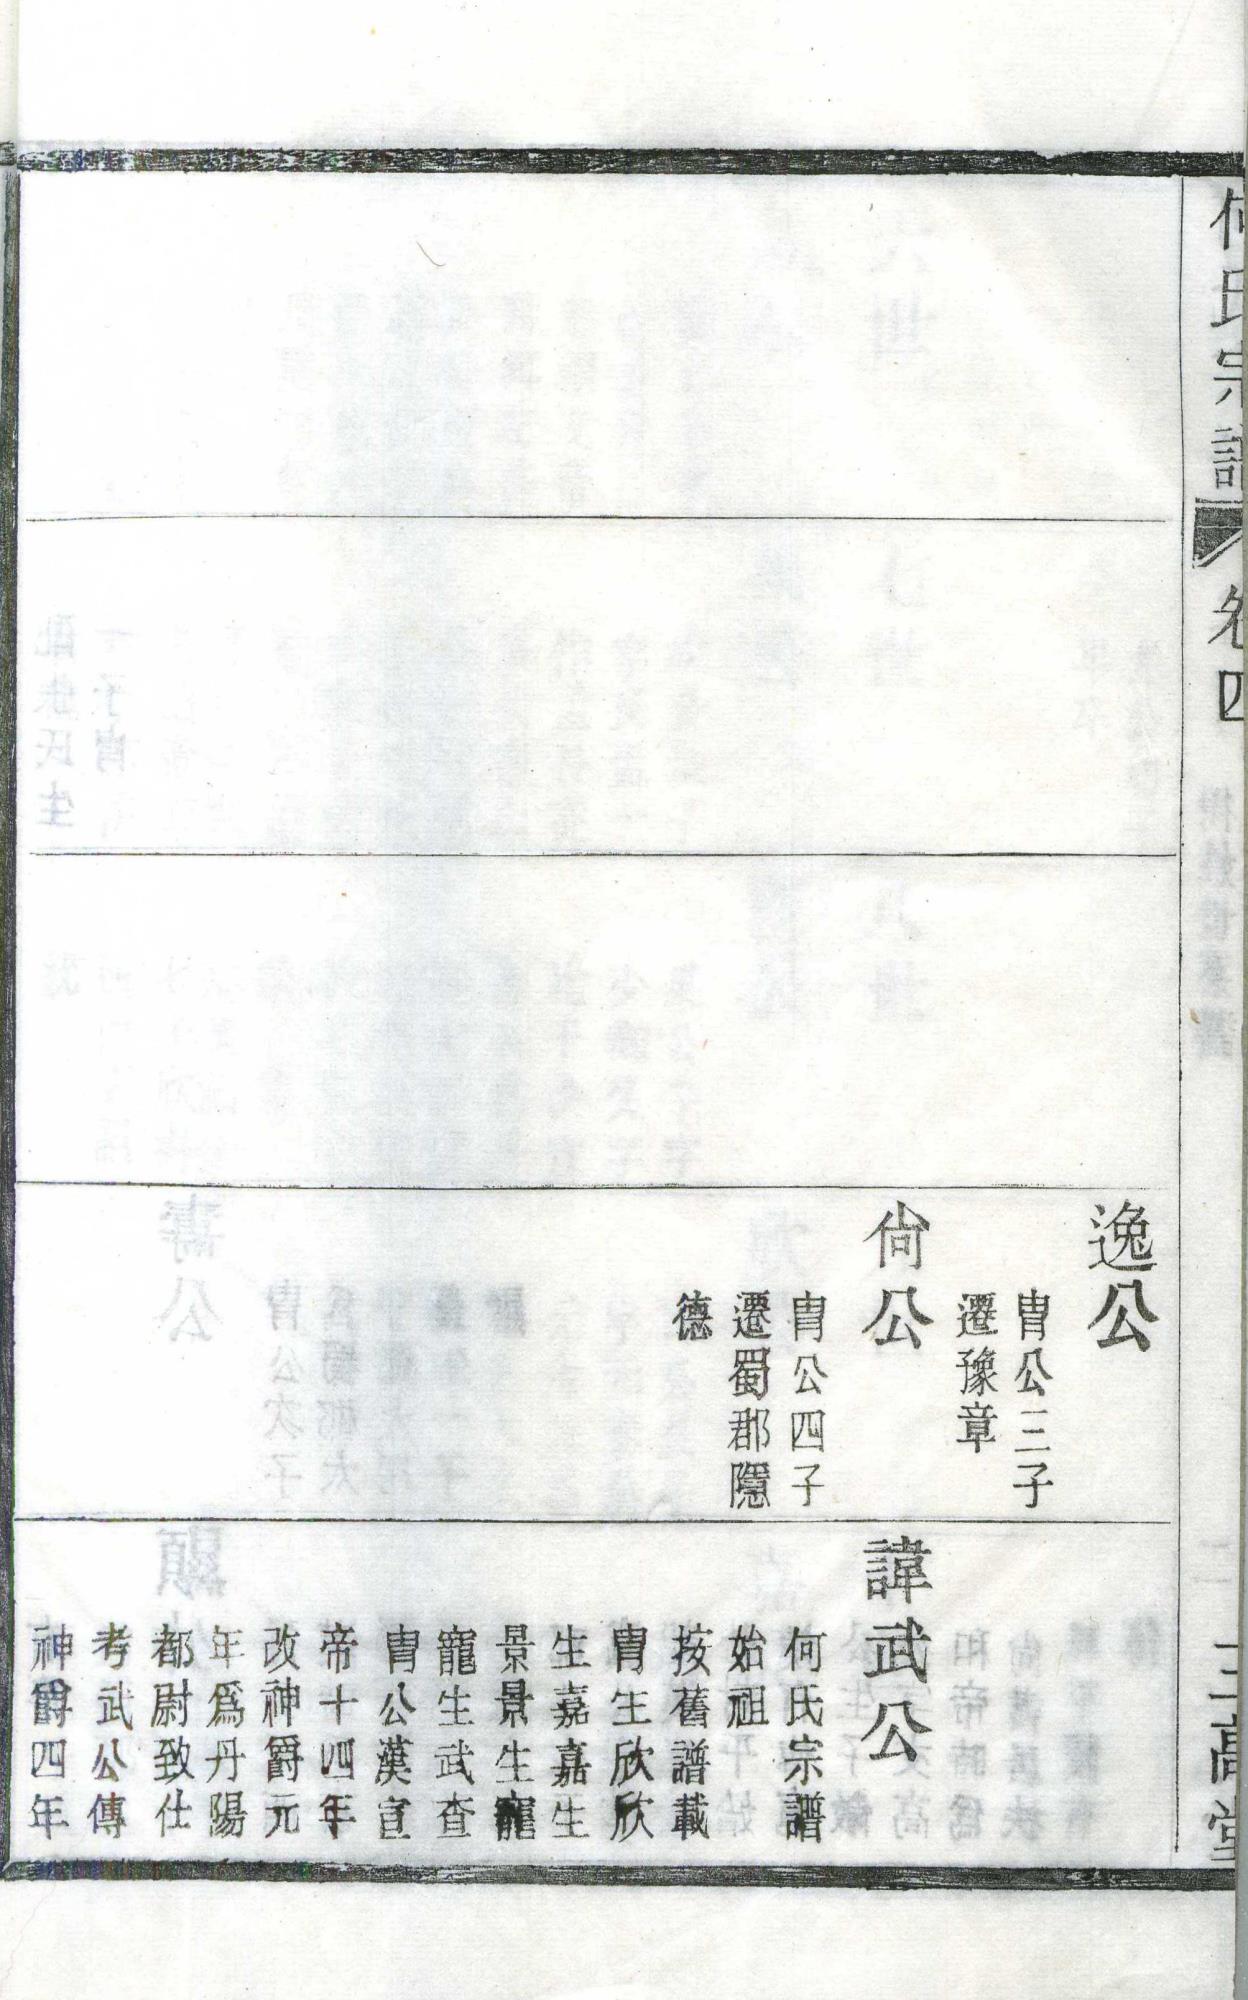 何氏宗譜
卷四
三高堂
逸公
胄公三子
遷豫章
尙公
胄公四子
遷蜀郡隱
德
諱武公
何氏宗譜
始祖
按舊譜載
胄生欣欣
生嘉嘉生
景景生寵
寵生武查
胄公漢宣
帝十四年
改神爵元
年爲丹陽
都尉致仕
考武公傳
神爵四年